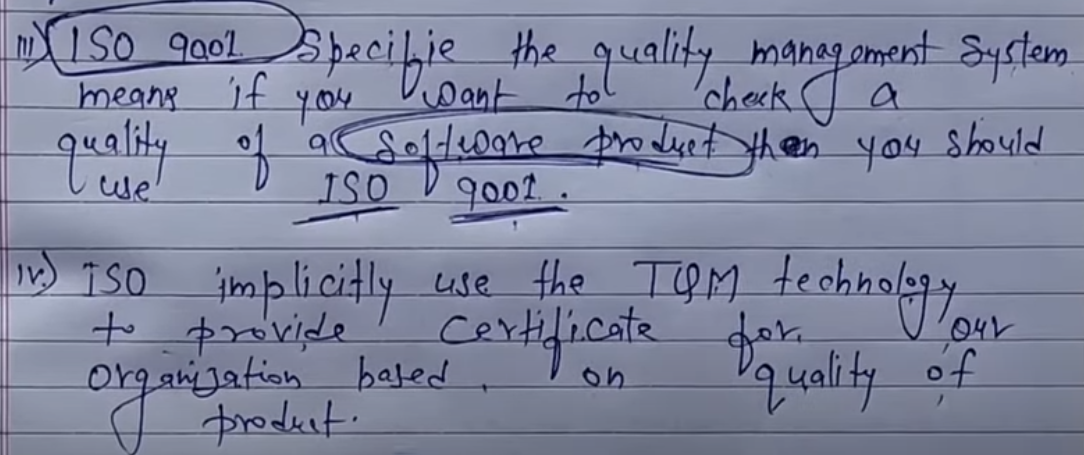 iii) ISO 9001 Specifie the quality management System
means if you want to check a
quality of a Software product then you should
use ISO 9001.
iv.) ISO implicitly use the TQM technology
to provide Certificate for our
Organization based on quality of
product.